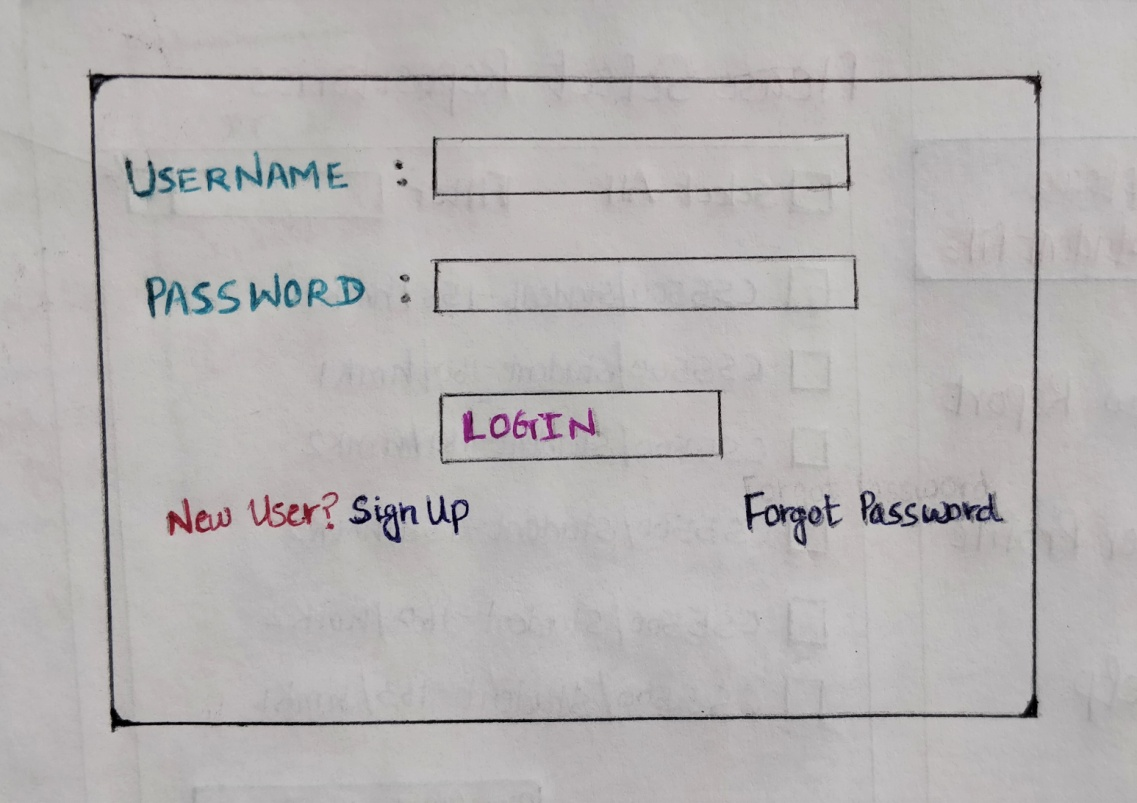 USERNAME :
PASSWORD :
LOGIN
New User? Sign Up Forgot Password